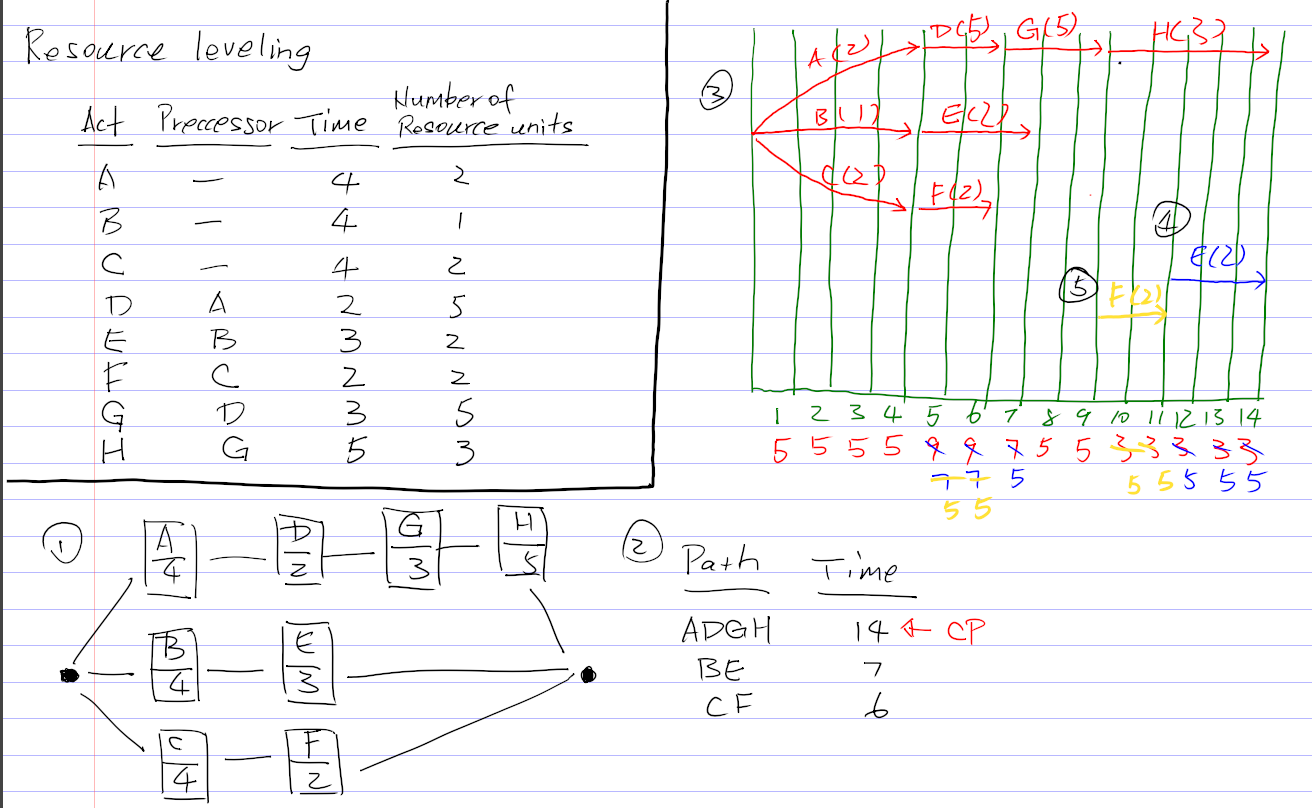 Resource leveling
Act Preccessor Time Number of Resource units
A — 4 2
B — 4 1
C — 4 2
D A 2 5
E B 3 2
F C 2 2
G D 3 5
H G 5 3
3
A(2) D(5) G(5) H(3)
B(1) E(2)
C(2) F(2)
4
E(2)
5
F(2)
1 2 3 4 5 6 7 8 9 10 11 12 13 14
5 5 5 5 9 9 7 5 5 3 3 3 3 3
7 7 5 5 5 5 5 5
5 5
1
A 4 D 2 G 3 H 5
B 4 E 3
C 4 F 2
2
Path Time
ADGH 14 ← CP
BE 7
CF 6